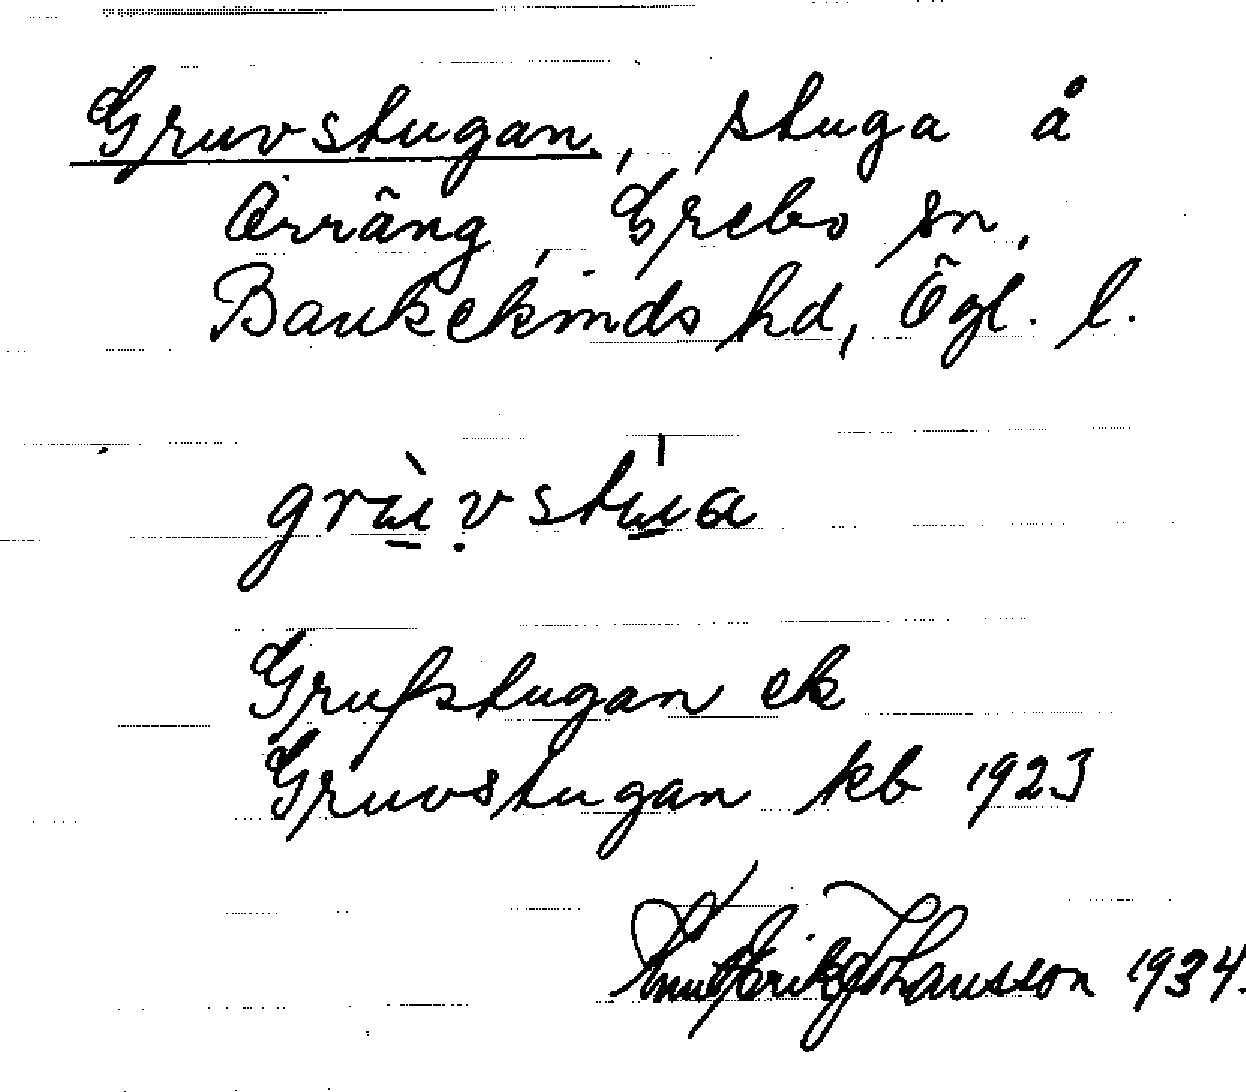 Gruvstugan, stuga å
Orräng, Grebo sn,
Bankekinds hd, Ögl. l.
grù̱ṿstu̱̍a
Grufstugan ek
Gruvstugan kb 1923
Knut Erik Johansson 1934.